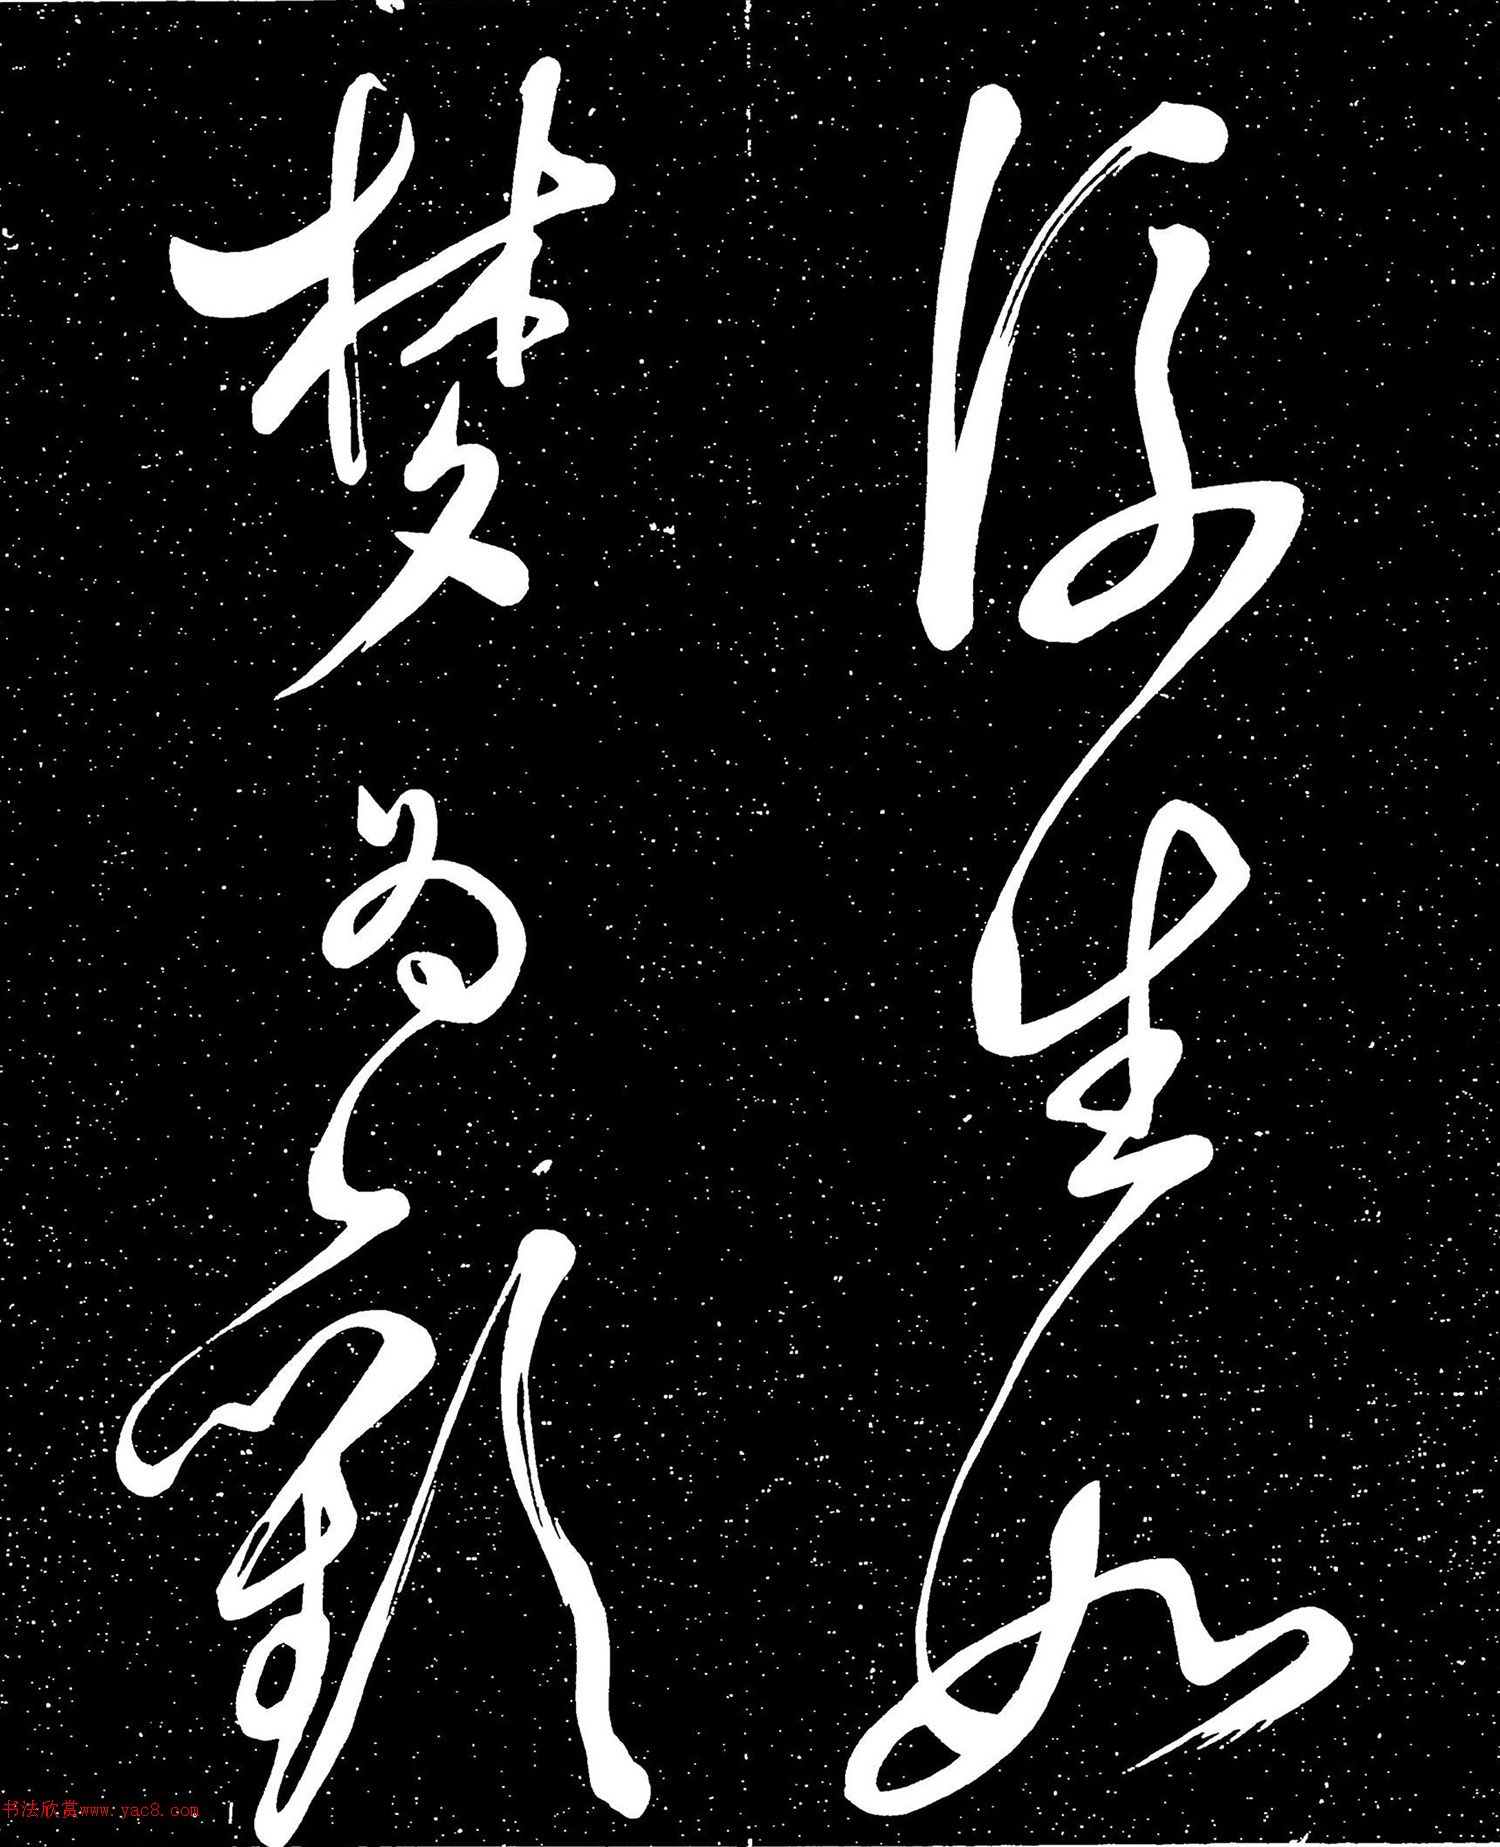 浮生如
梦为欢
书法欣赏www.yac8.com